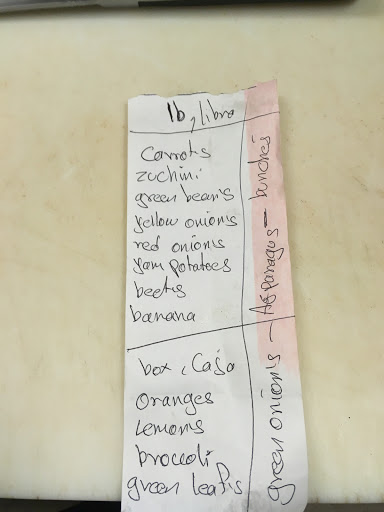 lb, libra
Carrots
zuchini
green bean's
yellow onion's
red onion's
yam potatoes
beets
banana
box, Caja
Oranges
Lemon's
brocoli
green leaf's
green onion's - Asparagus - bunches